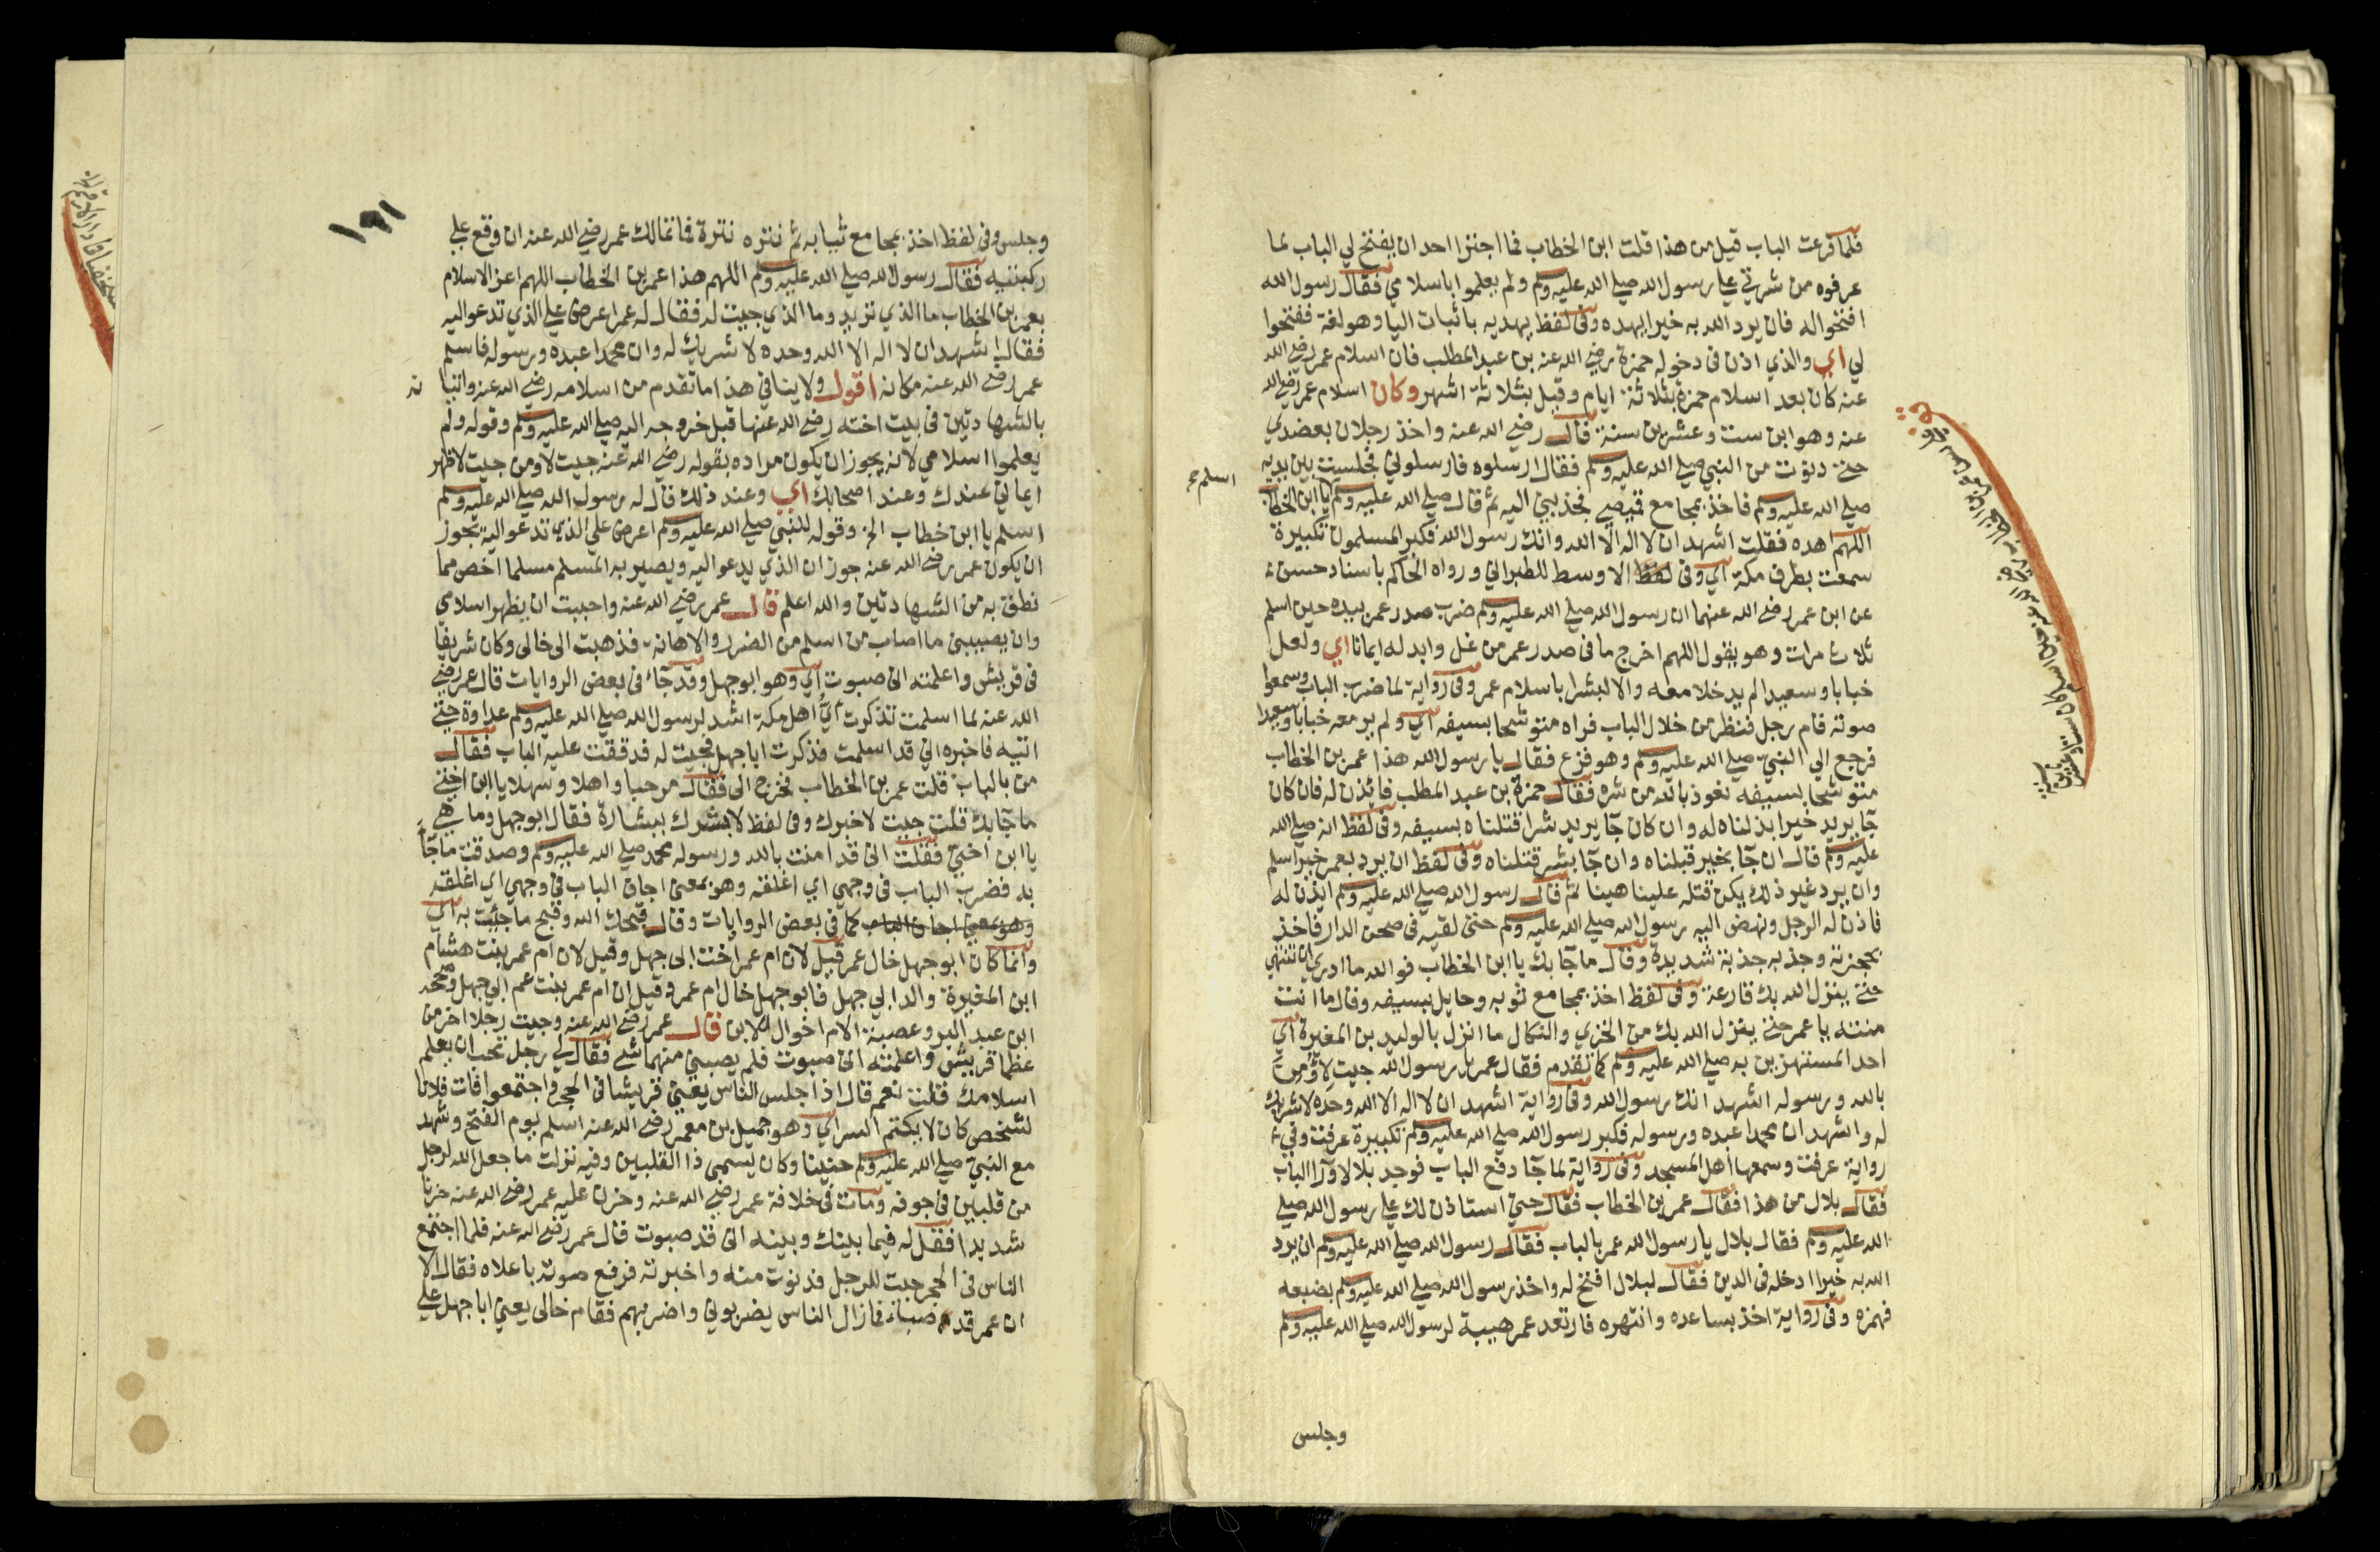 فلما قرعت الباب قيل من هذا قلت ابن الخطاب فما اجترا احد ان يفتح لي الباب لما
عرفوه من شدتي على رسول الله صلى الله عليه وسلم ولم يعلموا باسلامي فقال رسول الله
افتحوا له فان يرد الله به خيرا يهده وفى لفظ يهديه باثبات اليا وهو لغة ففتحوا
لي اي والذي اذن فى دخوله حمزة رضي الله عنه بن عبد المطلب فان اسلام عمر رضي الله
عنه كان بعد اسلام حمزة بثلاثة ايام وقيل بثلاثة اشهر وكان اسلام عمر رضي الله
عنه وهو ابن ست وعشرين سنة قال رضي الله عنه واخذ رجلان بعضدي
حتى دنوت من النبي صلى الله عليه وسلم فقال ارسلوه فارسلوني فجلست بين يديه
صلى الله عليه وسلم فاخذ بمجامع قميصي فجذبني اليه ثم قال صلى الله عليه وسلم يا ابن الخطاب
اسلم
اللهم اهده فقلت اشهد ان لا اله الا الله وانك رسول الله فكبر المسلمون تكبيرة
سمعت بطرف مكة اي وفى لفظ الاوسط للطبراني ورواه الحاكم باسناد حسن
عن ابن عمر رضي الله عنهما ان رسول الله صلى الله عليه وسلم ضرب صدر عمر بيده حين اسلم
ثلاث مرات وهو يقول اللهم اخرج ما فى صدر عمر من غل وابدله ايمانا اي ولعل
خبابا وسعيدا لم يدخلا معه والا لبشرا باسلام عمر وفى رواية لما ضرب الباب وسمعوا
صوته قام رجل فنظر من خلال الباب فراه متوشحا بسيفه اي ولم ير معه خبابا وسعيدا
فرجع الى النبي صلى الله عليه وسلم وهو فزع فقال يا رسول الله هذا عمر بن الخطاب
متوشحا بسيفه نعوذ بالله من شره فقال حمزة بن عبد المطلب فائذن له فان كان
جا يريد خيرا بذلناه له وان كان جا يريد شرا قتلناه بسيفه وفى لفظ انه صلى الله
عليه وسلم قال ان جا بخير قبلناه وان جا بشر قتلناه وفى لفظ ان يرد بعمر خيرا يسلم
وان يرد غير ذلك يكن قتله علينا هينا ثم قال رسول الله صلى الله عليه وسلم ايذن له
فاذن له الرجل ونهض اليه رسول الله صلى الله عليه وسلم حتى لقيه فى صحن الدار فاخذ
بحجزته وجذبه جذبة شديدة وقال ما جا بك يا ابن الخطاب فوالله ما ادري ان تنتهي
حتى ينزل الله بك قارعة وفى لفظ اخذ بمجامع ثوبه وحمايل سيفه وقال ما انت
منته يا عمر حتى ينزل الله بك من الخزي والنكال ما انزل بالوليد بن المغيرة اي
احد المستهزين به صلى الله عليه وسلم كما تقدم فقال عمر يا رسول الله جيت لاومن
بالله ورسوله اشهد انك رسول الله وفى رواية اشهد ان لا اله الا الله وحده لا شريك
له واشهد ان محمدا عبده ورسوله فكبر رسول الله صلى الله عليه وسلم تكبيرة عرفت وفي
رواية عرفت وسمعها اهل المسجد وفى رواية لما جا دفع الباب فوجد بلالا ورا الباب
فقال بلال من هذا فقال عمر بن الخطاب فقال حتى استاذن لك على رسول الله صلى
الله عليه وسلم فقال بلال يا رسول الله عمر بالباب فقال رسول الله صلى الله عليه وسلم ان يرد
الله به خيرا ادخله فى الدين فقال لبلال افتح له واخذ رسول الله صلى الله عليه وسلم بضبعه
فهزه وفى رواية اخذ بساعده وانتهره فارتعد عمر هيبة لرسول الله صلى الله عليه وسلم
وجلس
١٩١
وجلس وفى لفظ اخذ بمجامع ثيابه ثم نتره نترة فما تمالك عمر رضي الله عنه ان وقع على
ركبتيه فقال رسول الله صلى الله عليه وسلم اللهم هذا عمر بن الخطاب اللهم اعز الاسلام
بعمر بن الخطاب ما الذي تريد وما الذي جيت له فقال له عمر اعرض علي الذي تدعو اليه
فقال اشهد ان لا اله الا الله وحده لا شريك له وان محمدا عبده ورسوله فاسلم
عمر رضي الله عنه مكانه اقول ولا ينافي هذا ما تقدم من اسلامه رضي الله عنه واتيا نه
بالشهادتين فى بيت اخته رضي الله عنها قبل خروجه اليه صلى الله عليه وسلم وقوله ولم
يعلموا اسلامي لانه يجوز ان يكون مراده بقوله رضي الله عنه جيت لاومن جيت لاظهر
ايماني عندك وعند اصحابك اي وعند ذلك قال له رسول الله صلى الله عليه وسلم
اسلم يا ابن خطاب الخ وقوله للنبي صلى الله عليه وسلم اعرض علي الذي تدعو اليه يجوز
ان يكون عمر رضي الله عنه جوز ان الذي يدعو اليه ويصير به المسلم مسلما اخص مما
نطق به من الشهادتين والله اعلم قال عمر رضي الله عنه واحببت ان يظهر اسلامي
وان يصيبني ما اصاب من اسلم من الضرر والاهانة فذهبت الى خالى وكان شريفا
فى قريش واعلمته انى صبوت اي وهو ابو جهل وقد جاء فى بعض الروايات قال عمر رضي
الله عنه لما اسلمت تذكرت اي اهل مكة اشد لرسول الله صلى الله عليه وسلم عداوة حتى
اتيه فاخبره اني قد اسلمت فذكرت ابا جهل فجيت له فدققت عليه الباب فقال
من بالباب قلت عمر بن الخطاب فخرج الى فقال مرحبا واهلا وسهلا يا ابن اختي
ما جا بك قلت جيت لاخبرك وفى لفظ لابشرك ببشارة فقال ابو جهل وما هي
يا ابن اختي فقلت انى قد امنت بالله ورسوله محمد صلى الله عليه وسلم وصدقت ما جا
به فضرب الباب فى وجهي اي اغلقه وهو بمعنى اجاف الباب فى وجهي اي اغلقه
وهو بمعنى اجاف الباب كما فى بعض الروايات وقال قبحك الله وقبح ما جئت به اي
وانما كان ابو جهل خال عمر قيل لان ام عمر اخت ابى جهل وقيل لان ام عمر بنت هشام
ابن المغيرة والد ابي جهل فابو جهل خال ام عمر وقيل ان ام عمر بنت عم ابي جهل وصححه
ابن عبد البر وعصبة الام اخوال الابن قال عمر رضي الله عنه وجيت رجلا اخر من
عظما قريش واعلمته انى صبوت فلم يصبني منهما شي فقال لي رجل تحب ان يعلم
اسلامك قلت نعم قال اذا جلس الناس يعني قريشا فى الحجر واجتمعوا فات فلانا
لشخص كان لا يكتم السر اي وهو جميل بن معمر رضي الله عنه اسلم يوم الفتح وشهد
مع النبي صلى الله عليه وسلم حنينا وكان يسمى ذا القلبين وفيه نزلت ما جعل الله لرجل
من قلبين فى جوفه ومات فى خلافة عمر رضي الله عنه وحزن عليه عمر رضي الله عنه حزنا
شديدا فقل له فيما بينك وبينه انى قد صبوت قال عمر رضي الله عنه فلما اجتمع
الناس فى الحجر جيت للرجل فدنوت منه واخبرته فرفع صوته باعلاه فقال الا
ان عمر قد صبا فما زال الناس يضربوني واضربهم فقام خالى يعني ابا جهل على